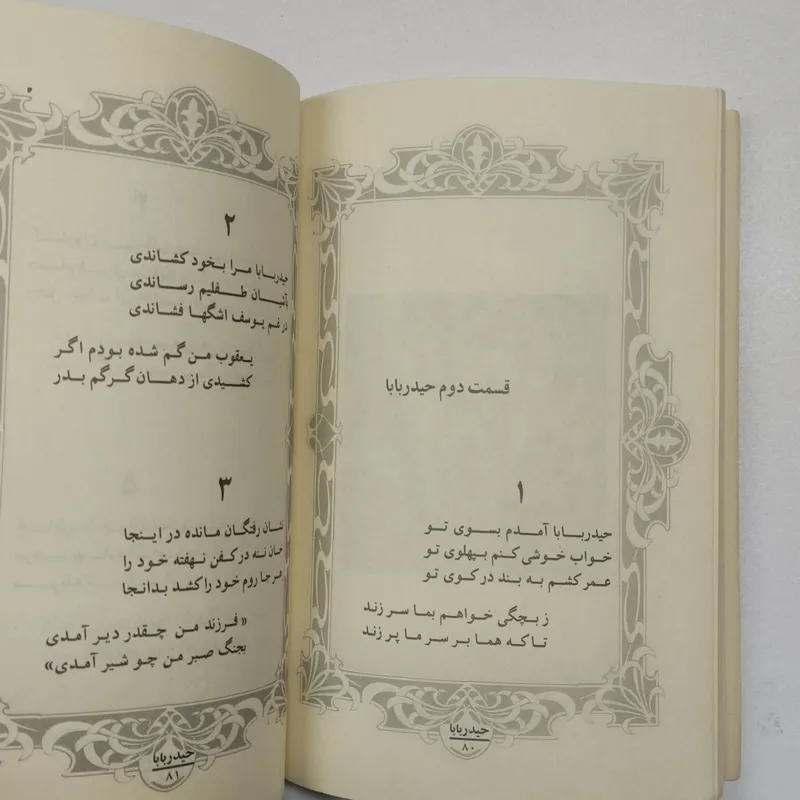 قسمت دوم حیدربابا
۱
حیدربابا آمدم بسوی تو
خواب خوشی کنم بپهلوی تو
عمر کشم به بند در کوی تو
ز بچگی خواهم بما سر زند
تا که هما بر سر ما پر زند
حیدربابا
۸۰
۲
حیدربابا مرا بخود کشاندی
بآشیان طفلیم رساندی
در غم یوسف اشگها فشاندی
یعقوب من گم شده بودم اگر
کشیدی از دهان گرگم بدر
۳
نشان رفتگان مانده در اینجا
خان ننه در کفن نهفته خود را
هر جا روم خود را کشد بدانجا
«فرزند من چقدر دیر آمدی
بجنگ صبر من چو شیر آمدی»
حیدربابا
۸۱